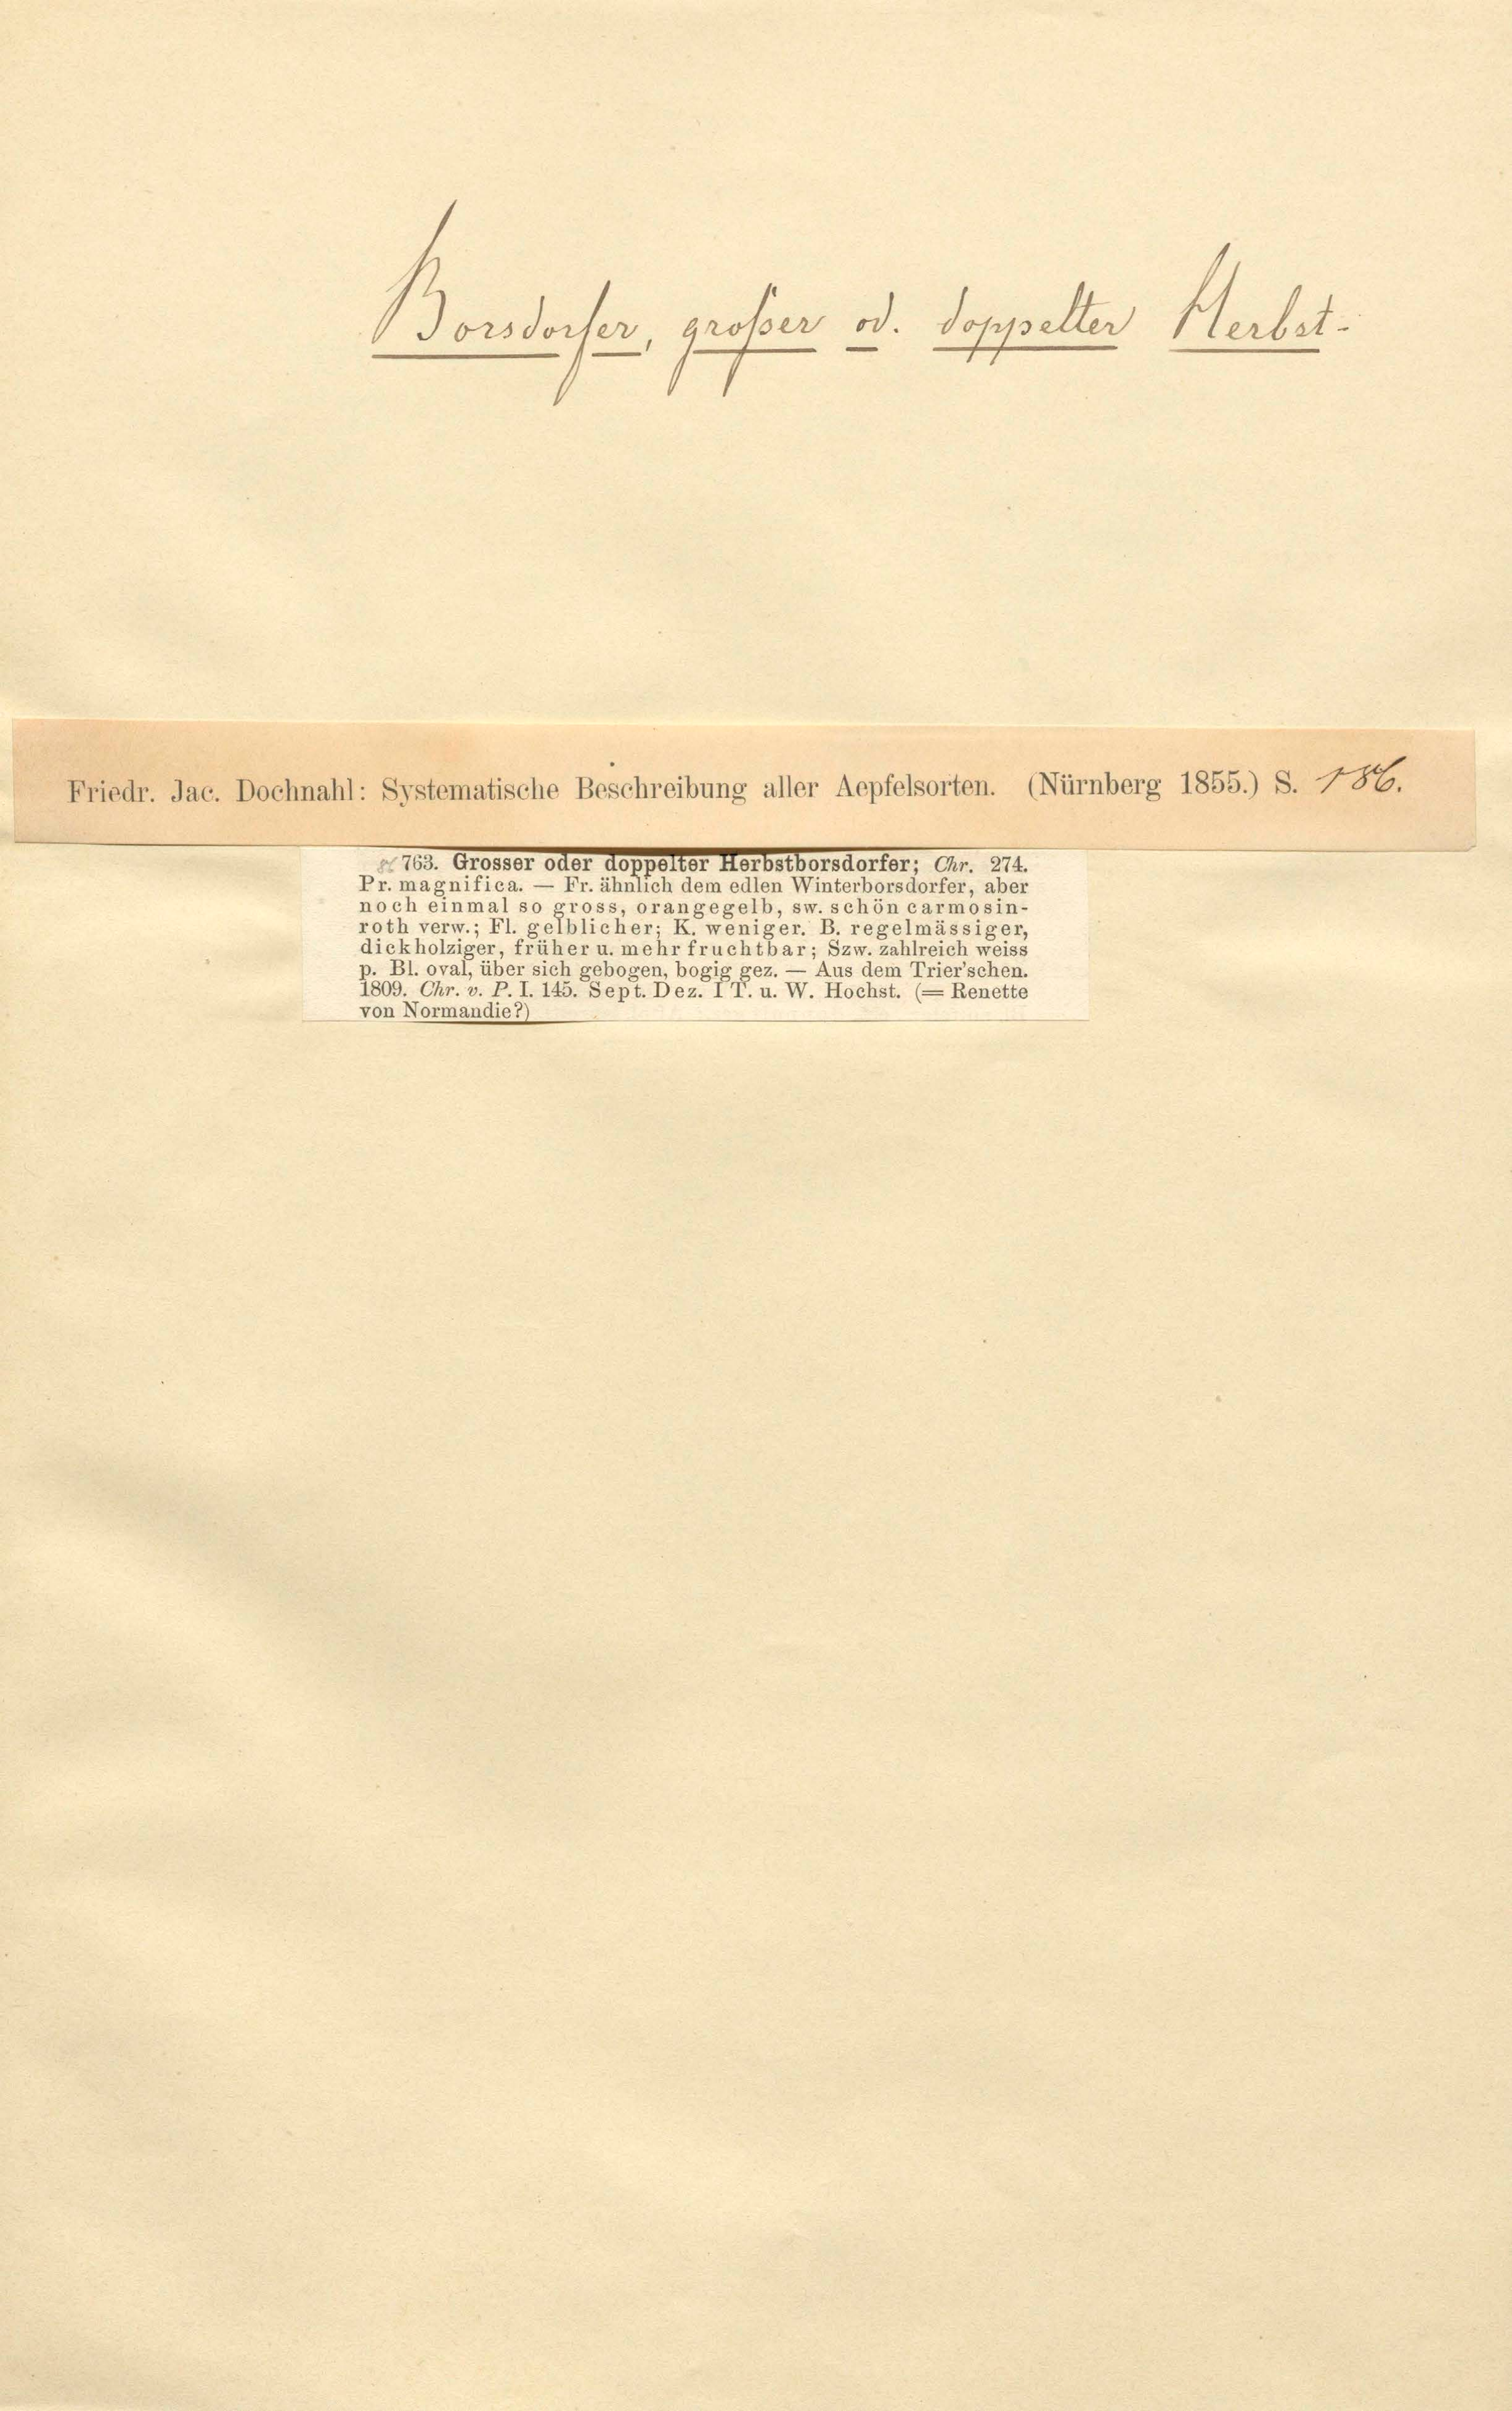 Borsdorfer, großer od. doppelter Herbst-
Friedr. Jac. Dochnahl: Systematische Beschreibung aller Aepfelsorten. (Nürnberg 1855.) S. 186.
763. Grosser oder doppelter Herbstborsdorfer; Chr. 274.
Pr. magnifica. — Fr. ähnlich dem edlen Winterborsdorfer, aber
noch einmal so gross, orangegelb, sw. schön carmosin-
roth verw.; Fl. gelblicher; K. weniger. B. regelmässiger,
dickholziger, früher u. mehr fruchtbar; Szw. zahlreich weiss
p. Bl. oval, über sich gebogen, bogig gez. — Aus dem Trier'schen.
1809. Chr. v. P. I. 145. Sept. Dez. I T. u. W. Hochst. (= Renette
von Normandie?)